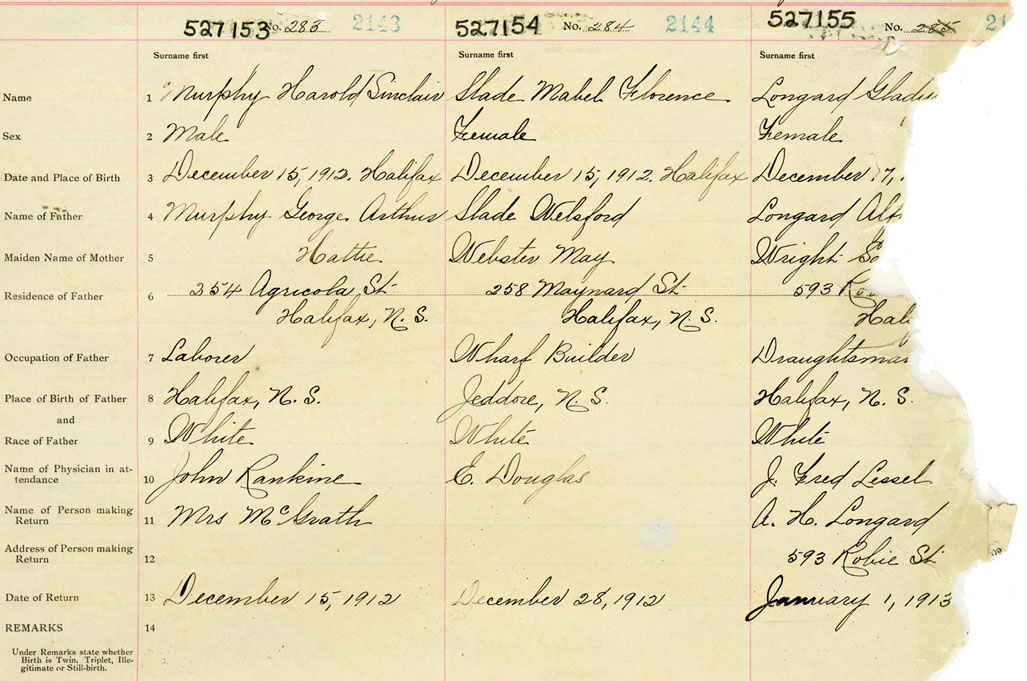 527153 No. 283 2143 527154 No. 284 2144 527155 No. 285 21
Surname first Surname first Surname first
Name 1 Murphy Harold Sinclair Slade Mabel Florence Longard Glady
Sex 2 Male Female Female
Date and Place of Birth 3 December 15, 1912. Halifax December 15, 1912. Halifax December 17,
Name of Father 4 Murphy George Arthur Slade Welsford Longard Alf
Maiden Name of Mother 5 Hattie Webster May Wright
Residence of Father 6 254 Agricola St. 258 Maynard St. 593
Halifax, N.S. Halifax, N.S. Hali
Occupation of Father 7 Laborer Wharf Builder Draughtsman
Place of Birth of Father 8 Halifax, N.S. Jeddore, N.S. Halifax, N.S.
and
Race of Father 9 White White White
Name of Physician in at-
tendance 10 John Rankine E. Douglas J. Fred Lessel
Name of Person making
Return 11 Mrs McGrath A. H. Longard
Address of Person making
Return 12 593 Robie St.
Date of Return 13 December 15, 1912 December 28, 1912 January 1, 1913
REMARKS 14
Under Remarks state whether
Birth is Twin, Triplet, Ille-
gitimate or Still-birth.